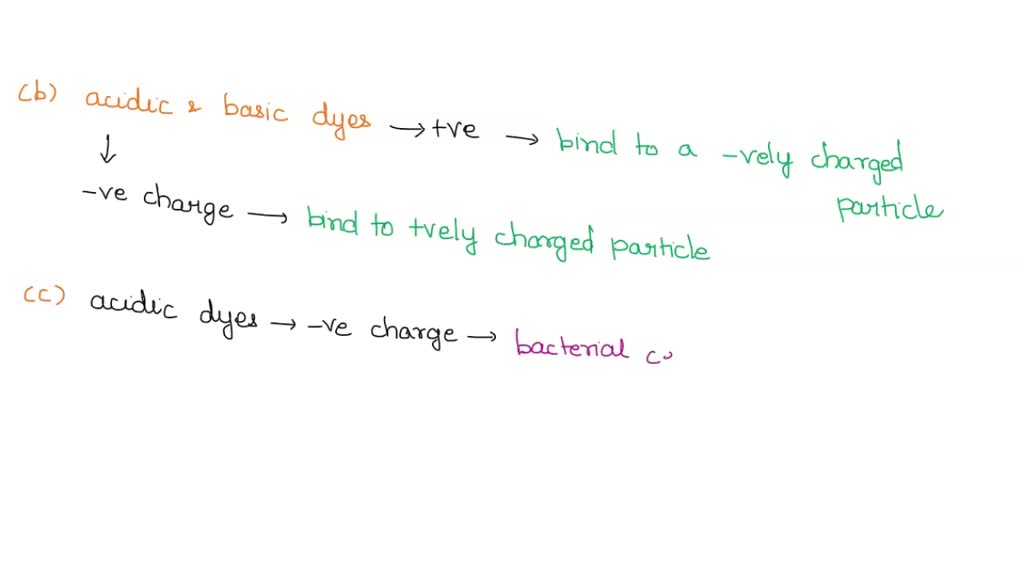 (b) acidic & basic dyes → +ve → bind to a -vely charged particle
↓
-ve charge → bind to +vely charged particle
(c) acidic dyes → -ve charge → bacterial